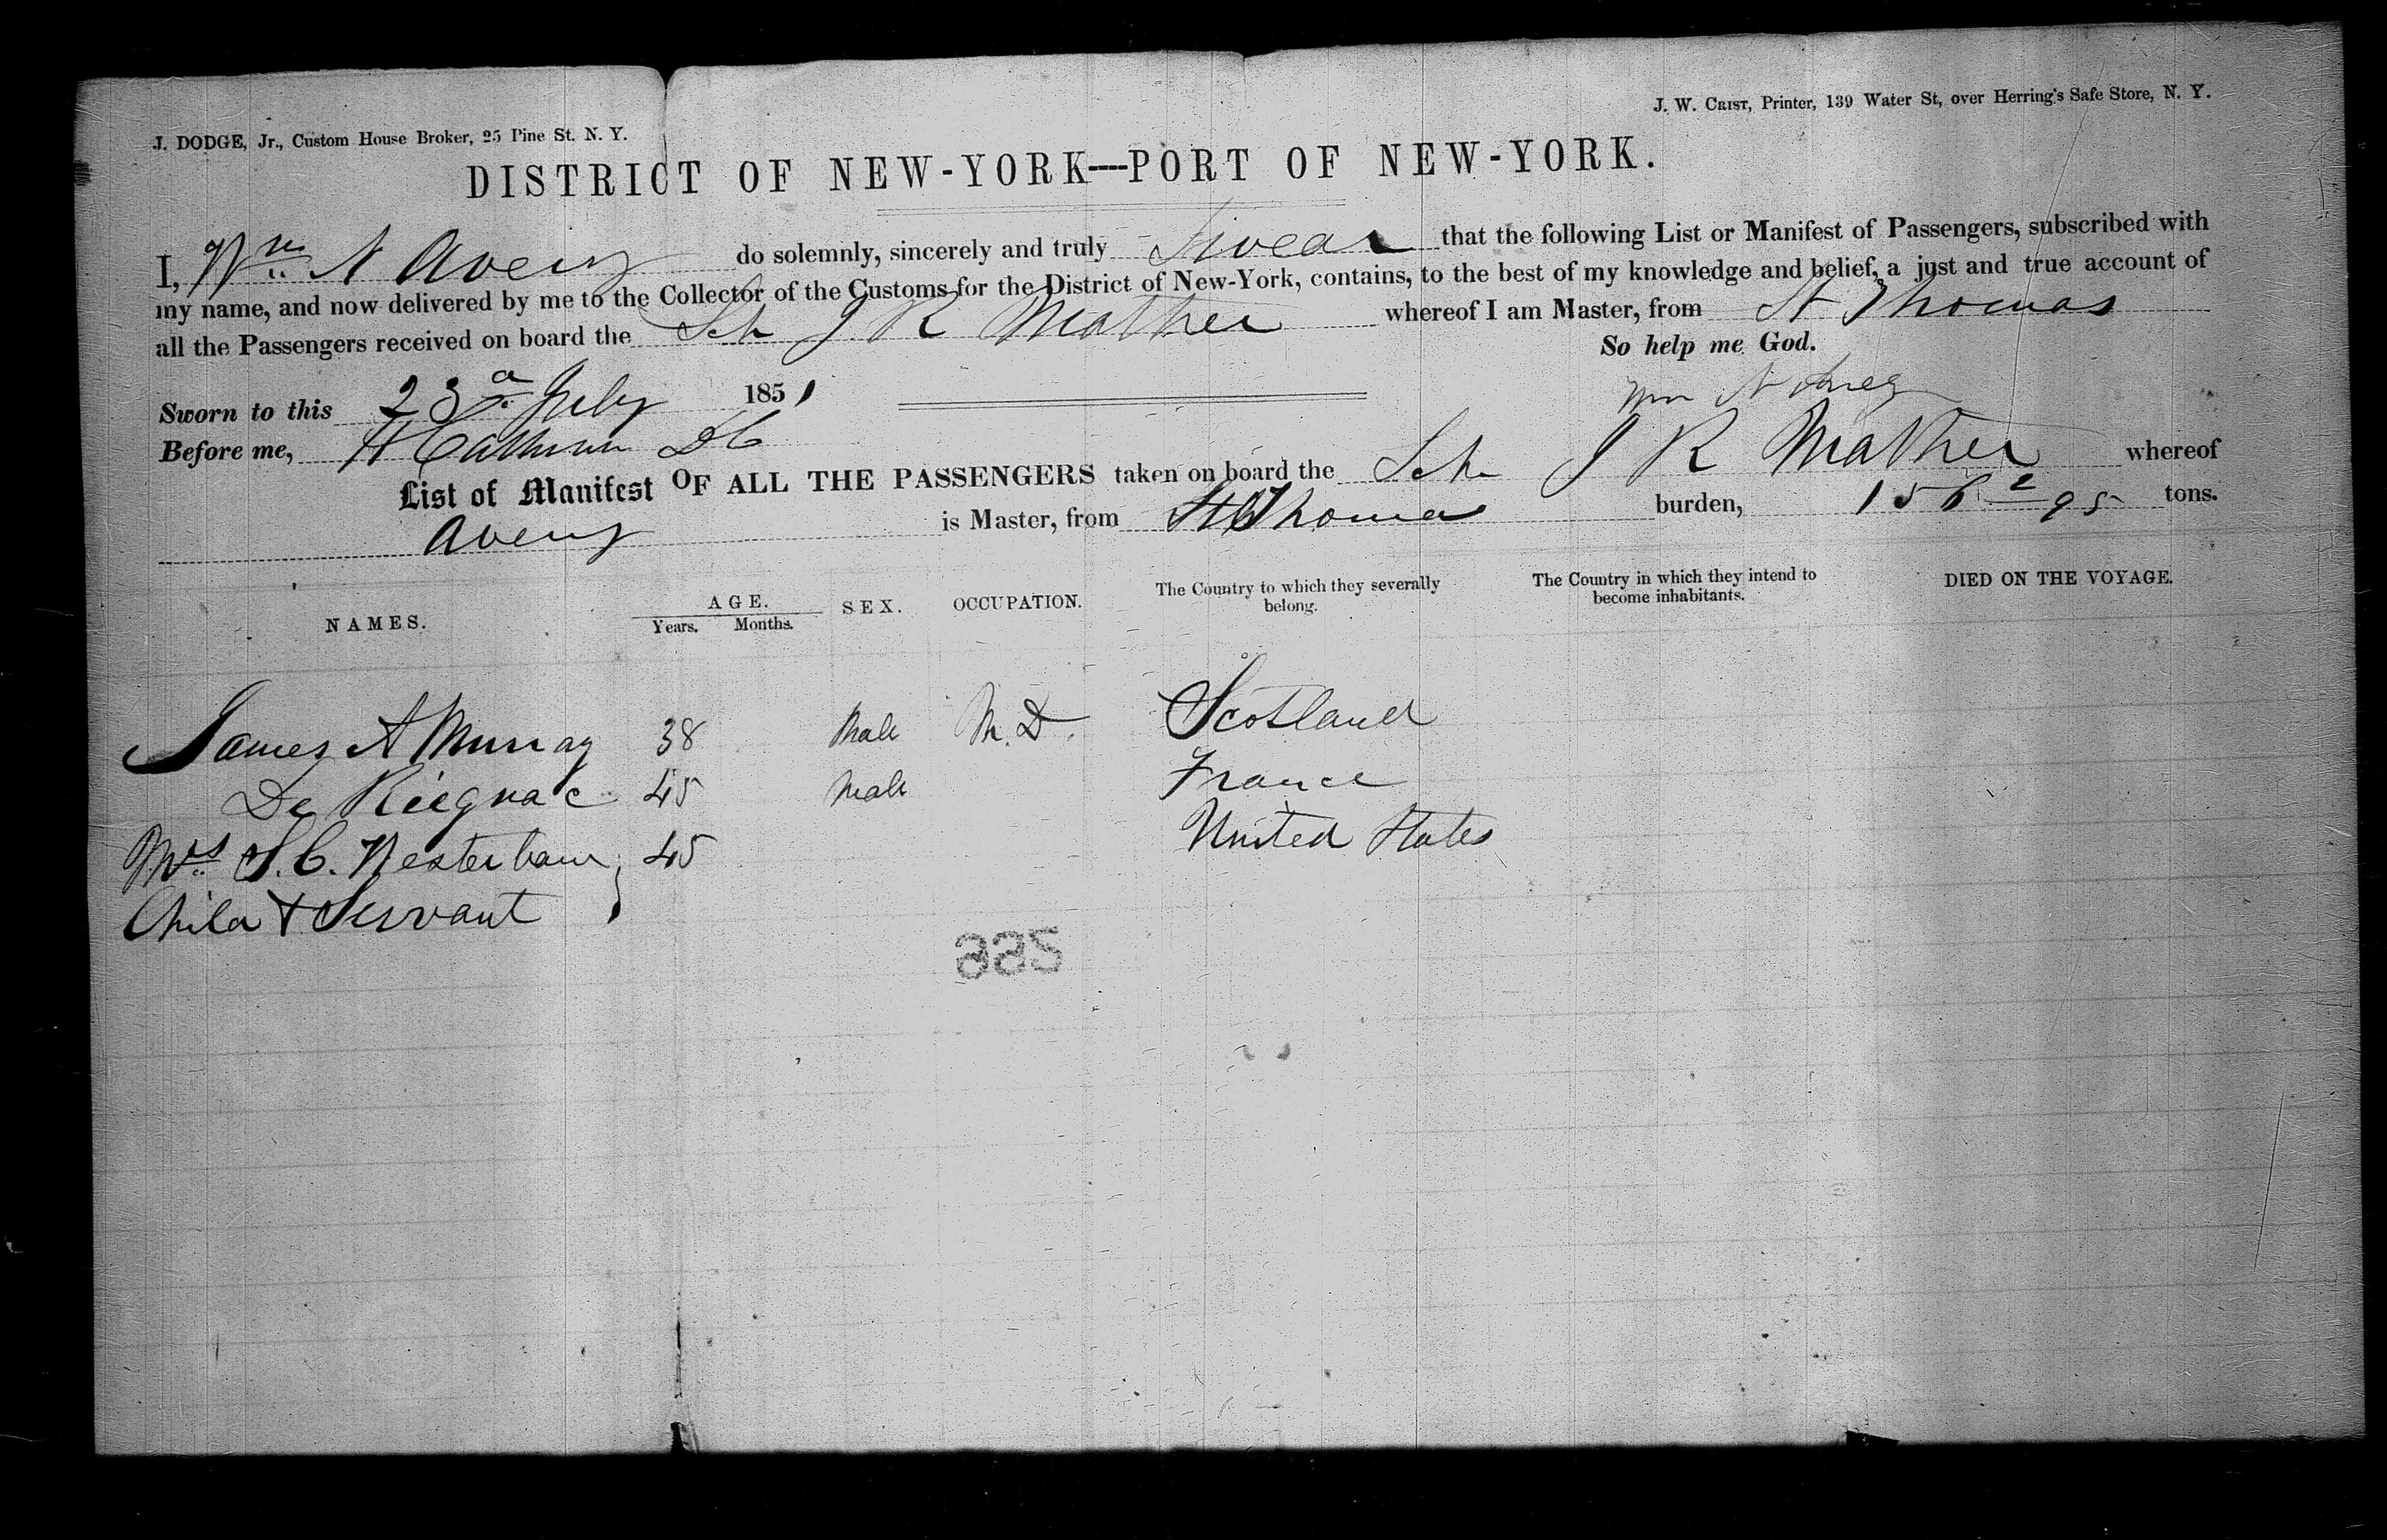 J. DODGE, Jr., Custom House Broker, 25 Pine St. N. Y.
J. W. CRIST, Printer, 139 Water St, over Herring's Safe Store, N. Y.
DISTRICT OF NEW-YORK—PORT OF NEW-YORK.
I, Wm N Avery do solemnly, sincerely and truly Swear that the following List or Manifest of Passengers, subscribed with
my name, and now delivered by me to the Collector of the Customs for the District of New-York, contains, to the best of my knowledge and belief, a just and true account of
all the Passengers received on board the Sch J R Mather whereof I am Master, from St Thomas
So help me God.
Sworn to this 23d July 1851
Wm N Avery
Before me, H DC
List of Manifest OF ALL THE PASSENGERS taken on board the Sch J R Mather whereof
Avery is Master, from St Thomas burden, 156 2/95 tons.
NAMES. AGE. Years. Months. SEX. OCCUPATION. The Country to which they severally belong. The Country in which they intend to become inhabitants. DIED ON THE VOYAGE.
James A Murray 38 Male M.D. Scotland
De Riegnac 45 Male France
Mrs S.C. 45 United States
Child + Servant